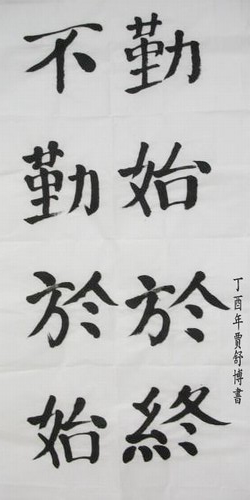 勤始於終
不勤於始
丁酉年賈舒博書